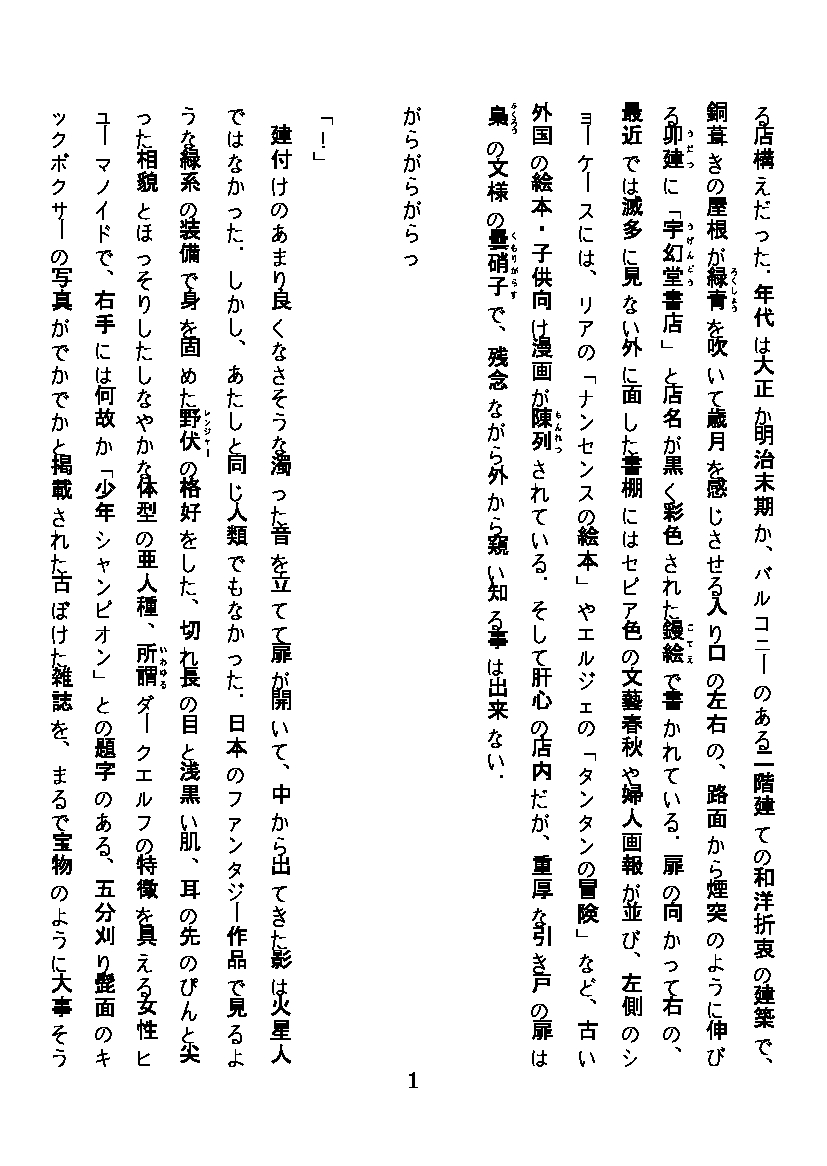 る店構えだった．年代は大正か明治末期か、バルコニーのある二階建ての和洋折衷の建築で、
銅葺きの屋根が緑青を吹いて歳月を感じさせる入り口の左右の、路面から煙突のように伸び
る卯建に「宇幻堂書店」と店名が黒く彩色された鏝絵で書かれている．扉の向かって右の、
最近では滅多に見ない外に面した書棚にはセピア色の文藝春秋や婦人画報が並び、左側のシ
ョーケースには、リアの「ナンセンスの絵本」やエルジェの「タンタンの冒険」など、古い
外国の絵本・子供向け漫画が陳列されている．そして肝心の店内だが、重厚な引き戸の扉は
梟の文様の曇硝子で、残念ながら外から窺い知る事は出来ない．
がらがらがらっ
「！」
建付けのあまり良くなさそうな濁った音を立てて扉が開いて、中から出てきた影は火星人
ではなかった．しかし、あたしと同じ人類でもなかった．日本のファンタジー作品で見るよ
うな緑系の装備で身を固めた野伏の格好をした、切れ長の目と浅黒い肌、耳の先のぴんと尖
った相貌とほっそりしたしなやかな体型の亜人種、所謂ダークエルフの特徴を具える女性ヒ
ューマノイドで、右手には何故か「少年シャンピオン」との題字のある、五分刈り髭面のキ
ックボクサーの写真がでかでかと掲載された古ぼけた雑誌を、まるで宝物のように大事そう
1